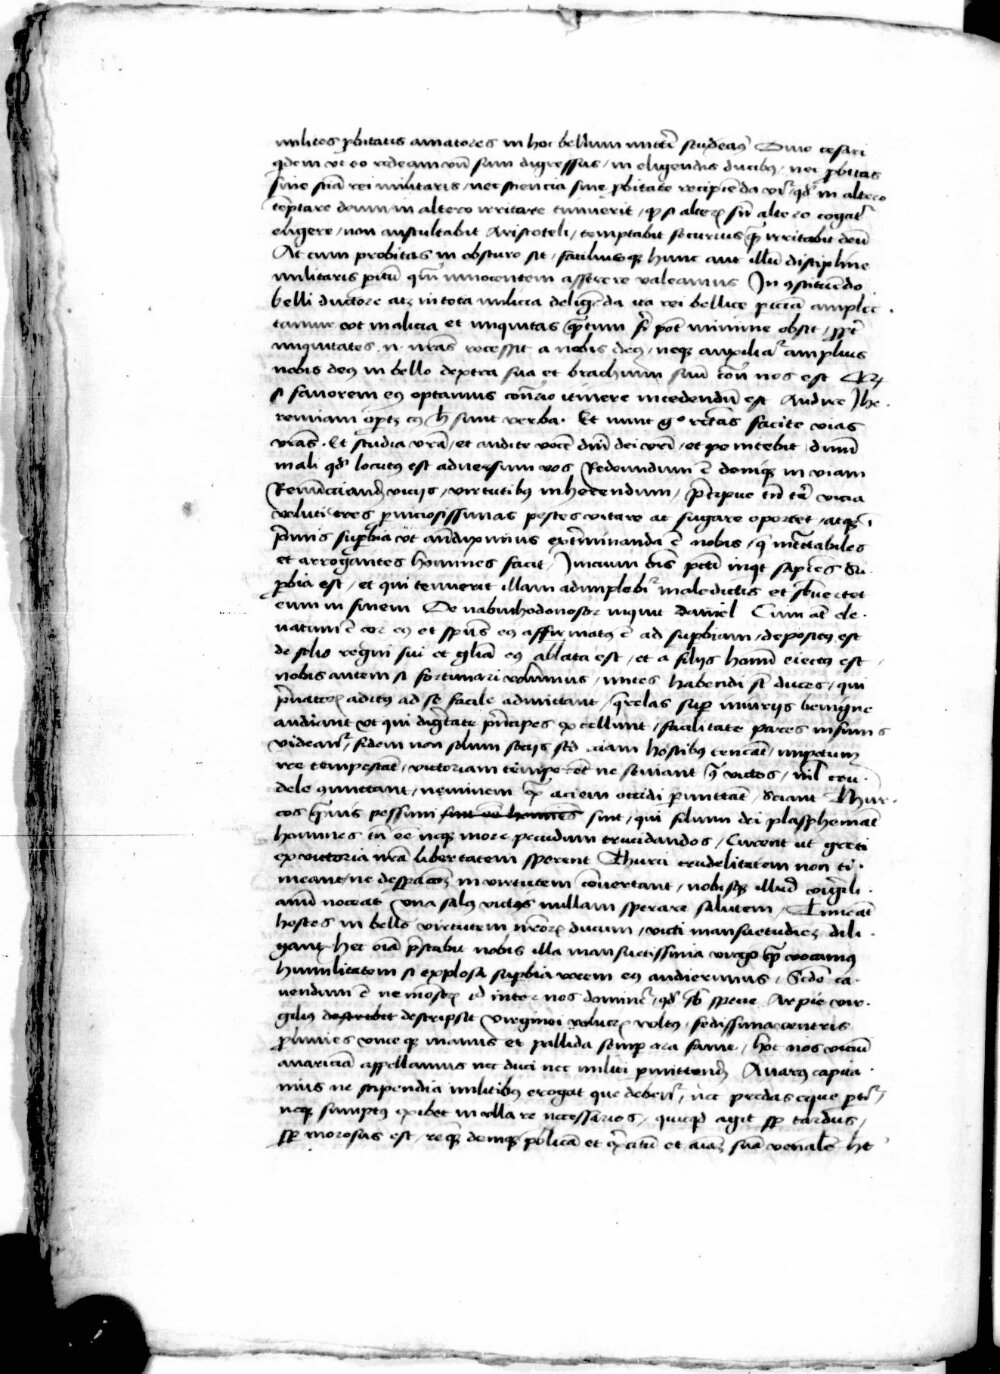 milites probitatis amatores in hoc bellum mitti studeat Divo cesari
quidem ut eo redeam unde sum digressus / in eligendis ducibus / nec probitas
sine scientia rei militaris / nec sciencia sine probitate recipienda videtur quod in altero
temptare deum in altero irritare timuerit / quod si alterum sine altero cogatur
eligere / non auscultabit Aristoteli / temptabit securius quam irritabit deum
At cum probitas in obscuro sit / faciliusque hunc aut illum discipline
militaris peritum quam innocentem asserere valeamus In constituendo
belli ductore atque in tota milicia deligenda ita rei bellice periciam amplec
tamur ut malicia et iniquitas quantum fieri potest minime obsit / propter
iniquitates nostras recessit a nobis deus / neque auxiliatur amplius
nobis deus in bello dextra sua et brachium suum contra nos est Quod
si favorem eius optamus contrario itinere incedendum est Audire Ihe
remiam oportet cuius hec sunt verba. Et nunc ergo rectas facite vias
vestras. Et studia vestra / et audite vocem domini dei vestri / et penitebit dominum
mali quod locutus est adversum vos Redeundum est denique in viam
Renunciandum viciis / virtutibus inherendum / precipue tamen tria vicia
veluti tres perniciosissimas pestes vitare ac fugare oportet / atque
primis superbia ut exterminanda est nobis / que intractabiles
et arrogantes homines facit / Inicium omnis peccati inquit sapiens Su
perbia est / et qui tenuerit illam adimplebitur maledictis et subvertet
eum in finem De nabuchodonosor inquit daniel Cum autem ele
vatum est cor eius et spiritus eius affirmatus est ad superbiam / depositus est
de solio regni sui et gloria eius ablata est / et a filiis hominum eiectus est
nobis autem si fortunari volumus / mites habendi sunt duces / qui
privatorum aditus ad se facile admittant / querelas super iniuriis benigne
audiant ut qui dignitate principes excellunt / facilitate pares infimis
videantur / fidem non solum sociis sed etiam hostibus teneant / impetum
ire temperent / victoriam temperent ne seviant in victos / nil cru
dele committant / neminem extra aciem occidi permittant / Sciant Thur
cos quamvis pessimi sint / qui filium dei plasphemant
homines tamen esse neque more pecudum trucidandos / Curent ut greci
ex victoria nostra libertatem sperent Thurci crudelitatem non ti
meant / ne desperacionem in virtutem convertant / nobisque illud virgili
anum noceat Una salus victis nullam sperare salutem / Timeant
hostes in bello virtutem nostrorum ducum / victi mansuetudinem dili
gant Hec omnia prestabit nobis illa mansuetissima virgo quam vocamus
humilitatem si explosa superbia vocem eius audierimus / Secundo ca
vendum est ne monstrum id inter nos dominetur / quod sub specie Arpie vir
gilius descripsit Virginei volucrum voltus / fedissima ventris
proluvies unceque manus et pallida semper ora fame / hoc nos vicium
avariciam appellamus nec duci nec militi permittendum Avarus capita
nius ne stipendia militibus erogat que debentur / nec predas eque partitur /
neque sumptus exibet in ulla re necessarios / quicquid agit semper tardus /
semper morosus est / remque denique publicam et exercitum et animam suam venalem habet